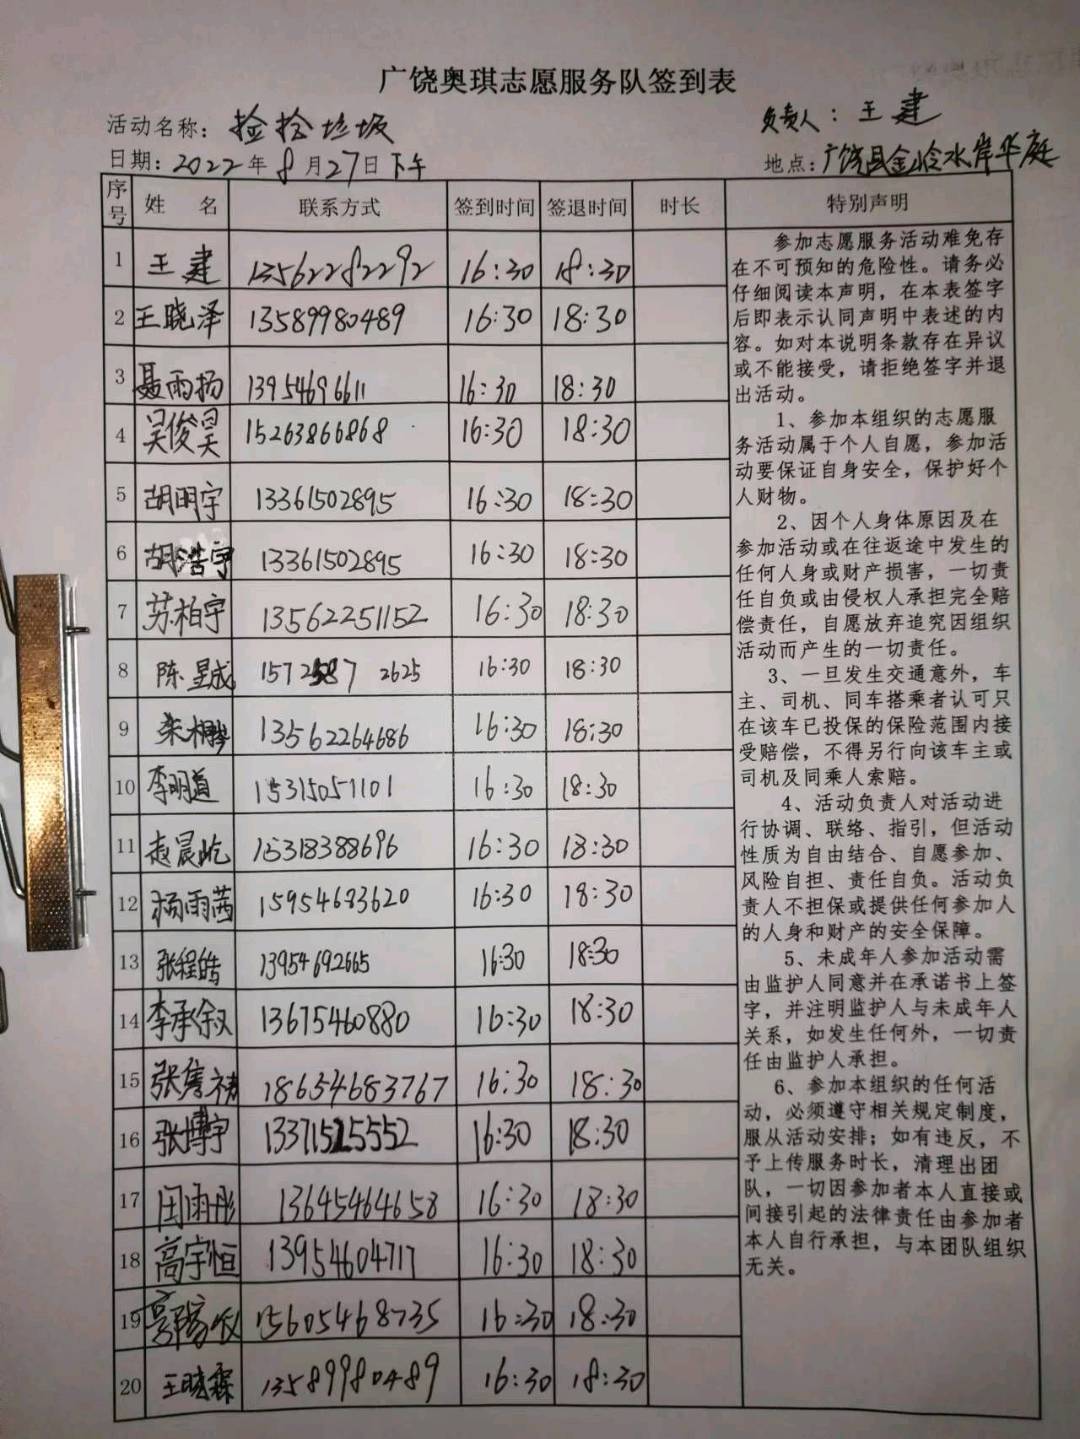 广饶奥琪志愿服务队签到表
活动名称：捡拾垃圾
负责人：王建
日期：2022年8月27日下午
地点：广饶县金岭水岸华庭
序号 姓名 联系方式 签到时间 签退时间 时长 特别声明
1 王建 13562282292 16:30 18:30
2 王晓泽 13589980489 16:30 18:30
3 聂雨扬 13954696611 16:30 18:30
4 吴俊昊 15263866868 16:30 18:30
5 胡明宇 13361502895 16:30 18:30
6 胡浩宇 13361502895 16:30 18:30
7 苏柏宇 13562251152 16:30 18:30
8 陈星成 157 2587 2625 16:30 18:30
9 13562264686 16:30 18:30
10 李明道 15315051101 16:30 18:30
11 赵晨屹 15318388696 16:30 18:30
12 杨雨茜 15954693620 16:30 18:30
13 张程皓 13954692665 16:30 18:30
14 李承叙 13675460880 16:30 18:30
15 张隽祎 18654683767 16:30 18:30
16 张博宇 13371525552 16:30 18:30
17 闫雨彤 13645464658 16:30 18:30
18 高宇恒 13954604717 16:30 18:30
19 15605468735 16:30 18:30
20 王晓霖 13589980489 16:30 18:30
参加志愿服务活动难免存
在不可预知的危险性。请务必
仔细阅读本声明，在本表签字
后即表示认同声明中表述的内
容。如对本说明条款存在异议
或不能接受，请拒绝签字并退
出活动。
1、参加本组织的志愿服
务活动属于个人自愿，参加活
动要保证自身安全，保护好个
人财物。
2、因个人身体原因及在
参加活动或在往返途中发生的
任何人身或财产损害，一切责
任自负或由侵权人承担完全赔
偿责任，自愿放弃追究因组织
活动而产生的一切责任。
3、一旦发生交通意外，车
主、司机、同车搭乘者认可只
在该车已投保的保险范围内接
受赔偿，不得另行向该车主或
司机及同乘人索赔。
4、活动负责人对活动进
行协调、联络、指引，但活动
性质为自由结合、自愿参加、
风险自担、责任自负。活动负
责人不担保或提供任何参加人
的人身和财产的安全保障。
5、未成年人参加活动需
由监护人同意并在承诺书上签
字，并注明监护人与未成年人
关系，如发生任何外，一切责
任由监护人承担。
6、参加本组织的任何活
动，必须遵守相关规定制度，
服从活动安排；如有违反，不
予上传服务时长，清理出团
队，一切因参加者本人直接或
间接引起的法律责任由参加者
本人自行承担，与本团队组织
无关。